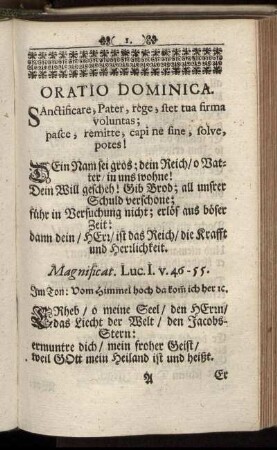 1.
ORATIO DOMINICA.
SAnctificare, Pater, rege, stet tua firma
voluntas;
pasce, remitte, capi ne sine, solve,
potes!
DEin Nam sei gros; dein Reich/ o Vat-
ter/ in uns wohne!
Dein Will gescheh! Gib Brod; all unsrer
Schuld verschone;
führ in Versuchung nicht; erlös aus böser
Zeit:
dann dein/ HErr/ ist das Reich/ die Krafft
und Herrlichkeit.
Magnificat. Luc. I. v. 46-55.
Im Ton: Vom Himmel hoch da kom̃ ich her ꝛc.
ERheb/ o meine Seel/ den HErrn/
das Liecht der Welt/ den Jacobs-
Stern:
ermuntre dich/ mein froher Geist/
weil GOtt mein Heiland ist und heißt.
A Er